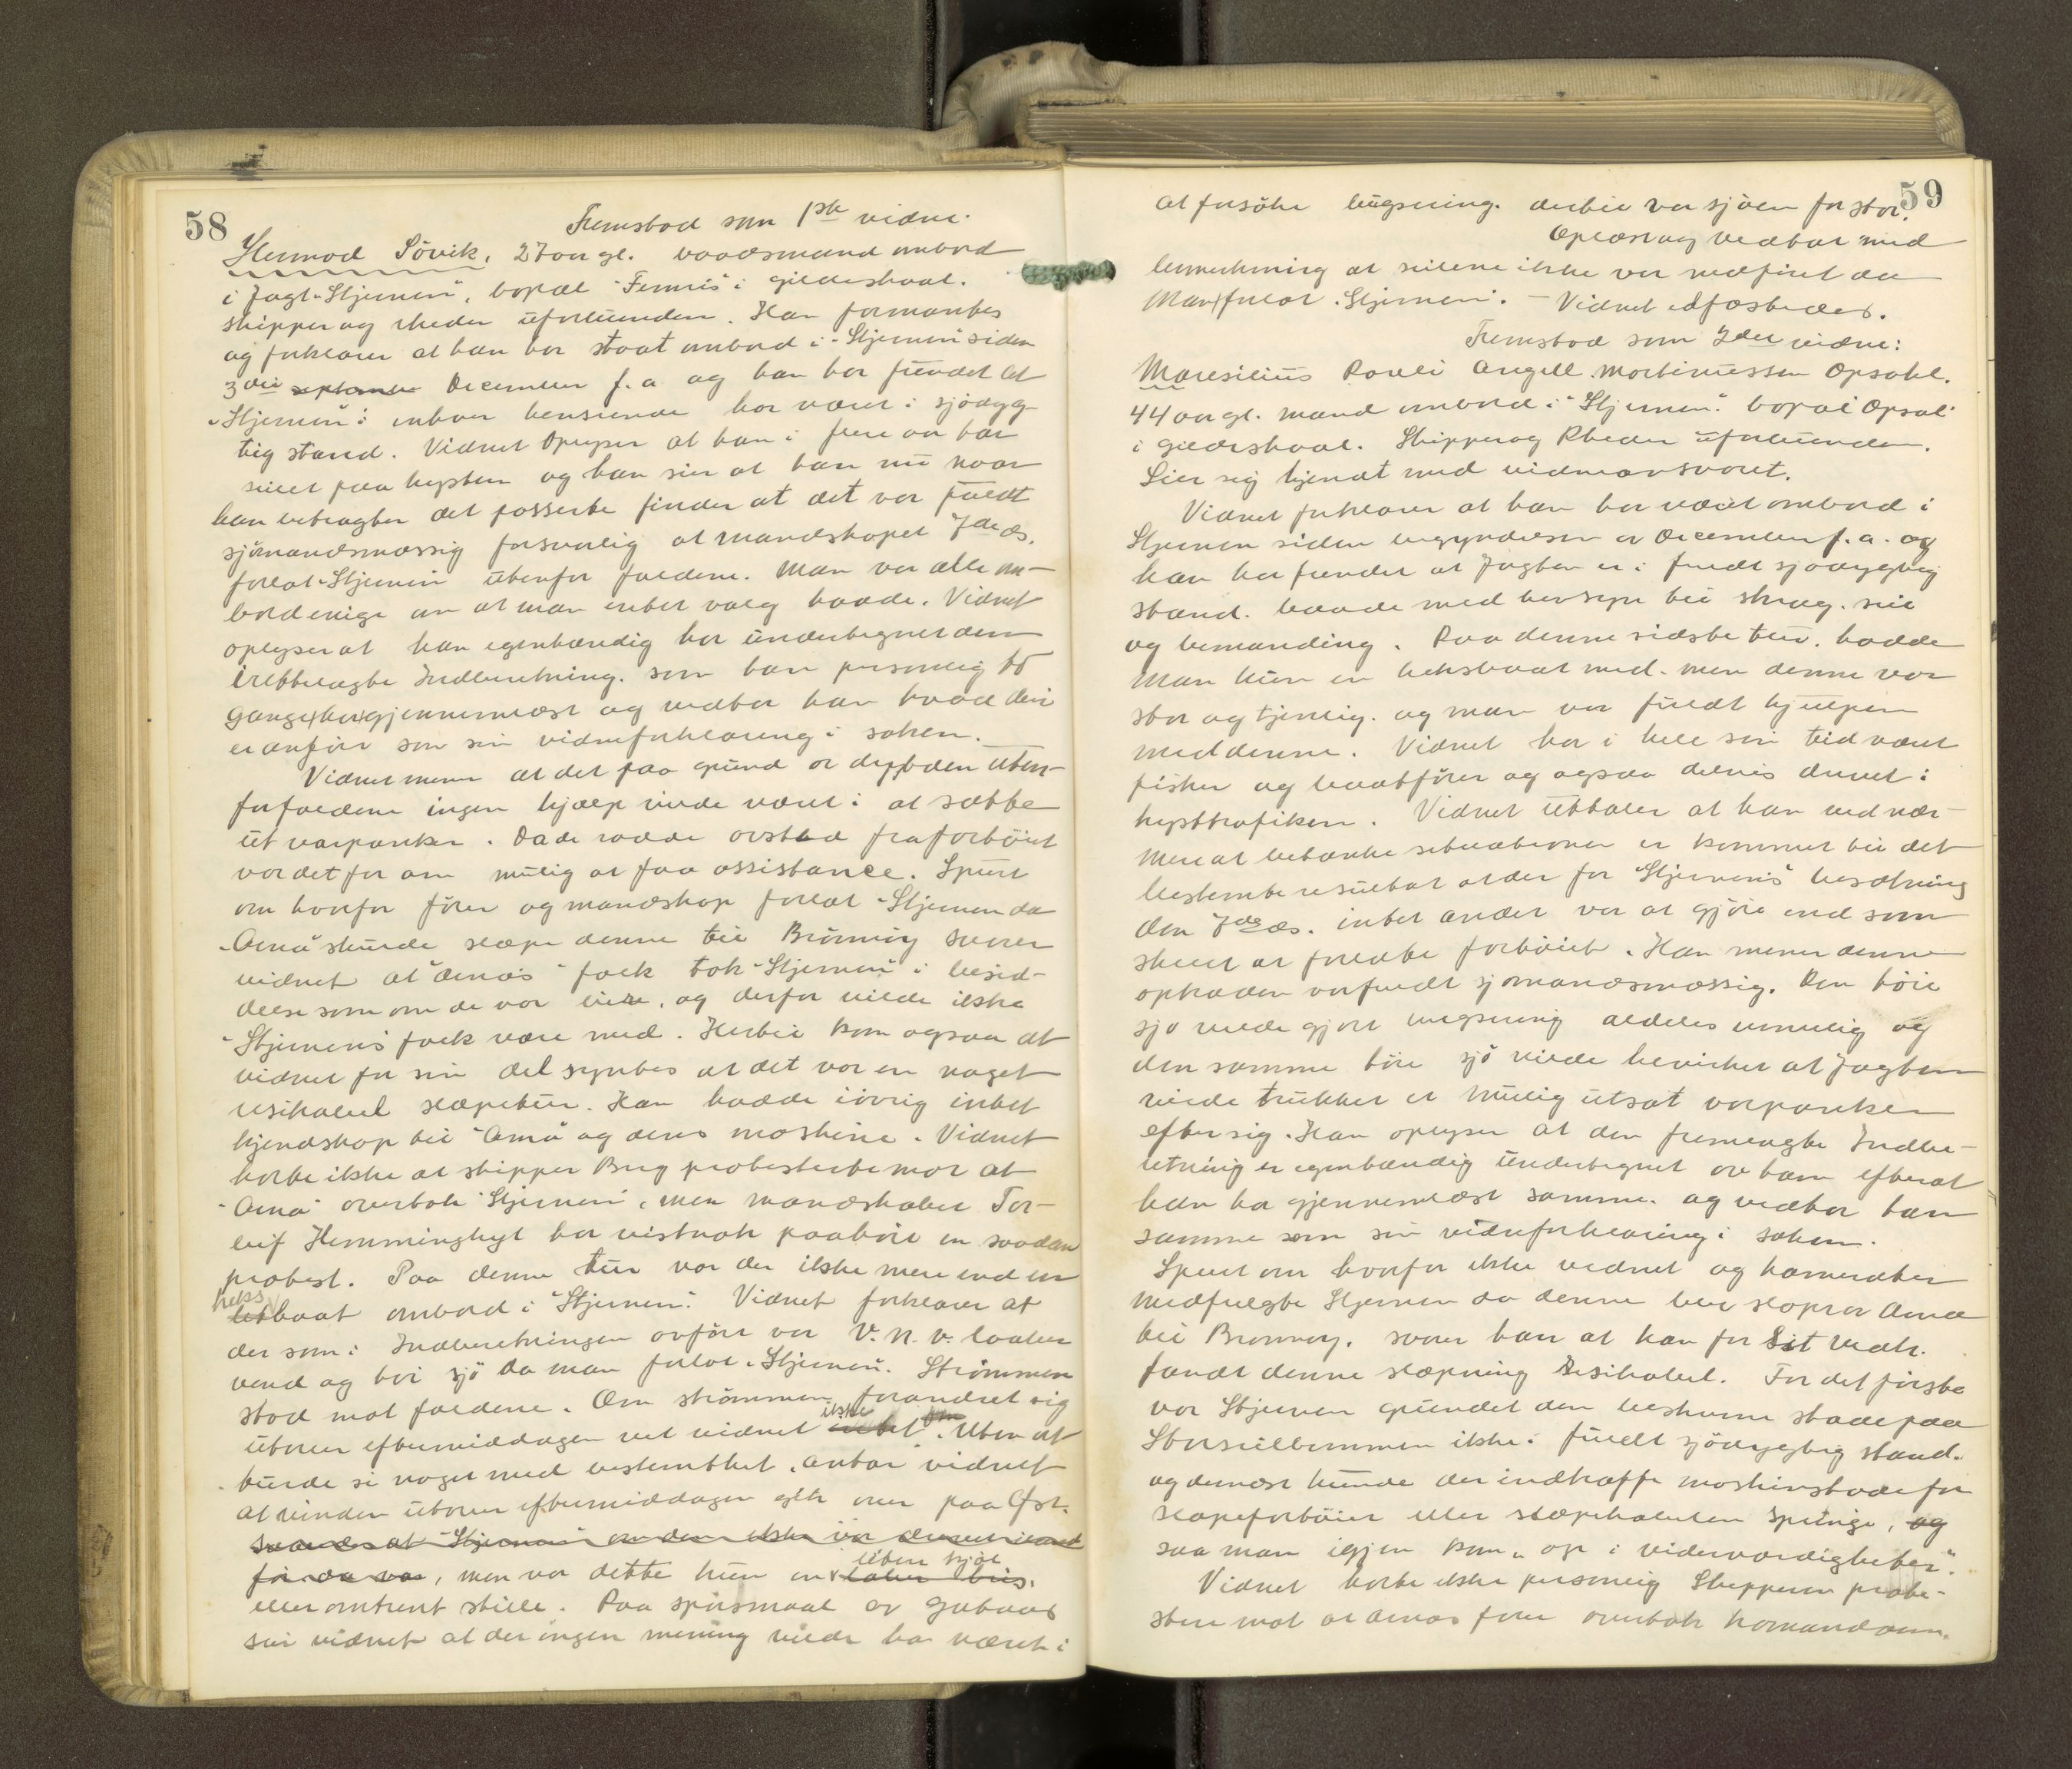 58
Fremstod som 1ste vidne.
Hermod Sövik, 27 aar gl. baadsmand ombord
i Jagt "Stjernen", bopæl "Fennes" i gildeskaal.
skipper og rheder uforbunden. Han formantes
og forklarer at han har staat ombord i "Stjernen" siden
3die september December f.a og han har fundet at
"Stjernen" i enhver henseende har været i sjödyg-
tig stand. Vidnet oplyser at han i flere aar har
seilet paa kysten og han sier at han nu naar
han betragter det passerte finder at det var fuldt
sjömandsmæssig forsvarlig at mandskapet 7de ds.
forlot "Stjernen" utenfor faldene. Man var alle om-
bord enige om at man intet valg hadde. Vidnet
oplyser at han egenhændig har undertegnet den
irettelagte Indberetning. som han personlig to
gange har gjennemlæst og vedtar han hvad deri
er anført som sin vidneforklaring i saken.
Vidnet mener at det paa grund av dybden uten-
for faldene ingen hjælp vilde været i at sætte
ut varpanker. Da de rodde avsted fra fartöiet
var det for om mulig at faa assistance. Spurt
om hvorfor förer og mandskap forlot "Stjernen" da
"Arnö" skulde slæpe denne til Brönnöy svarer
vidnet at "Arnös" folk tok "Stjernen" i besid-
delse som om de var eiere, og derfor vilde ikke
"Stjernens" folk være med. Hertil kom ogsaa at
vidnet for sin del syntes at det var en noget
risikabel slæpetur. Han hadde iövrig intet
kjendskap til "Arnö" og dens maskine. Vidnet
hörte ikke at skipper Berg protesterte mot at
"Arnö" overtok "Stjernen", men mandskabet Tor-
leif Hemminghyt har vistnok paahört en saadan
protest. Paa denne tur var der ikke mere end en
heks
letbaat ombord i "Stjernen". Vidnet forklarer at
der som i Indberetningen anfört var V.N.V. laber
vind og höi sjö da man forlot "Stjernen". Strömmen
stod mot faldene. Om strömmen forandret sig
ikke
utover eftermiddagen vet vidnet intet om. Uten at
turde si noget med bestemthet, antar vidnet
at vinden utover eftermiddagen gik over paa Øst.
för da var, men var dette kun en liten kjöl
laber bris.
eller omtrent stille. Paa spörsmaal av
sier vidnet at der ingen mening vilde ha været i
59
at forsöke bugsering. dertil var sjöen for stor.
Oplæst og vedtat med
bemerkning at seilene ikke var nedfiret da
man forlot "Stjernen". - Vidnet edfæstedes.
Fremstod som 2det vidne:
Maresilius Pauli Angell Mortinussen Opsahl.
44 aar gl. mand ombord i "Stjernen". bopæl Opsal
i gildeskaal. Skipper og Rheder uforbunden.
Sier sig kjendt med vidneansvaret.
Vidnet forklarer at han har været ombord i
Stjernen siden begyndelsen av December f.a. og
han har fundet at Jagten er i fuldt sjödygtig
stand. baade med hensyn til skrog. seil
og bemanding. Paa denne sidste tur. hadde
man kun en heksbaat med. men denne var
stor og tjenlig. og man var fuldt hjulpen
med denne. Vidnet har i hele sin tid været
fisker og baatförer og ogsaa delvis drevet i
kysttrafiken. Vidnet uttaler at han ved nær-
mere at betænke situationen er kommet til det
bestemte resultat at der for "Stjernens" besætning
den 7de ds. intet andet var at gjöre end som
skeet at forlate fartöiet. Han mener denne
optræden var fuldt sjömandsmæssig. Den höie
sjö vilde gjort bugsering aldeles umulig og
den samme höie sjö vilde bevirket at Jagten
vilde trukket et mulig utsat varpanker
efter sig. Han oplyser at den fremlagte Indbe-
retning er egenhændig undertegnet av ham efterat
han har gjennemlæst samme. og vedtar han
samme som sin vidneforklaring i saken.
Spurt om hvorfor ikke vidnet og kamerater
medfulgte Stjernen da denne blev slæpt av Arnö
til Brönnöy. svarer han at han for sit vedk.
fandt denne slæpning risikabel. For det förste
var Stjernen grundet den bekomne skade paa
Storseilbommen ikke i fuldt sjödygtig stand.
og dernæst kunde der indtræffe maskinskade for
slæpefartöiet eller slæpekabelen springe, og
saa man igjen kom "op i viderværdigheter".
Vidnet hörte ikke personlig Skipperen prote-
stere mot at Arnös förer overtok komandoen.